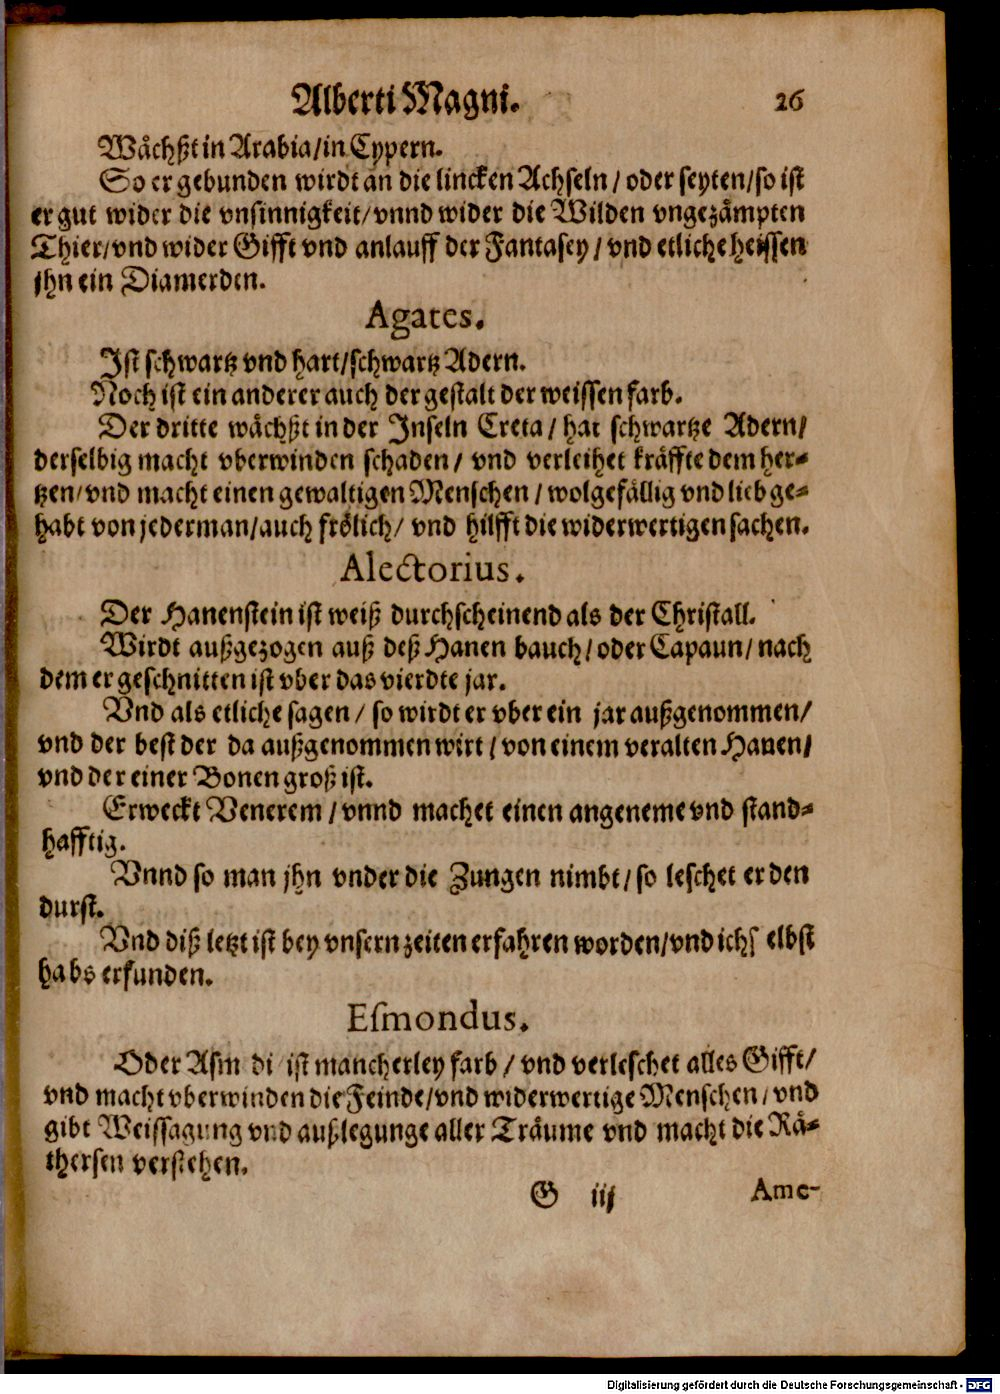 Alberti Magni. 26
Wåchßt in Arabia/in Cypern.
So er gebunden wirdt an die lincken Achseln/ oder seyten/so ist
er gut wider die vnsinnigkeit/vnnd wider die Wilden vngezåmpten
Thier/vnd wider Gifft vnd anlauff der Fantasey/ vnd etliche heissen
jhn ein Diamerden.
Agates.
Ist schwartz vnd hart/schwartz Adern.
Noch ist ein anderer auch der gestalt der weissen farb.
Der dritte wåchßt in der Inseln Creta/ hat schwartze Adern/
derselbig macht vberwinden schaden/ vnd verleihet kråffte dem her-
tzen/vnd macht einen gewaltigen Menschen/ wolgefållig vnd lieb ge-
habt von jederman/auch frölich/ vnd hilfft die widerwertigen sachen.
Alectorius.
Der Hanenstein ist weiß durchscheinend als der Christall.
Wirdt außgezogen auß deß Hanen bauch/ oder Capaun/ nach
dem er geschnitten ist vber das vierdte jar.
Vnd als etliche sagen/ so wirdt er vber ein jar außgenommen/
vnd der best der da außgenommen wirt/ von einem veralten Hanen/
vnd der einer Bonen groß ist.
Erweckt Venerem/ vnnd machet einen angeneme vnd stand-
hafftig.
Vnnd so man jhn vnder die Zungen nimbt/ so leschet er den
durst.
Vnd diß letzt ist bey vnsern zeiten erfahren worden/vnd ich selbst
habs erfunden.
Eſmondus.
Oder Asm di ist mancherley farb/ vnd verleschet alles Gifft/
vnd macht vberwinden die Feinde/vnd widerwertige Menschen/ vnd
gibt Weissagung vnd außlegunge aller Tråume vnd macht die Rå-
thersen verstehen.
G iij Ame-
Digitalisierung gefördert durch die Deutsche Forschungsgemeinschaft - DFG